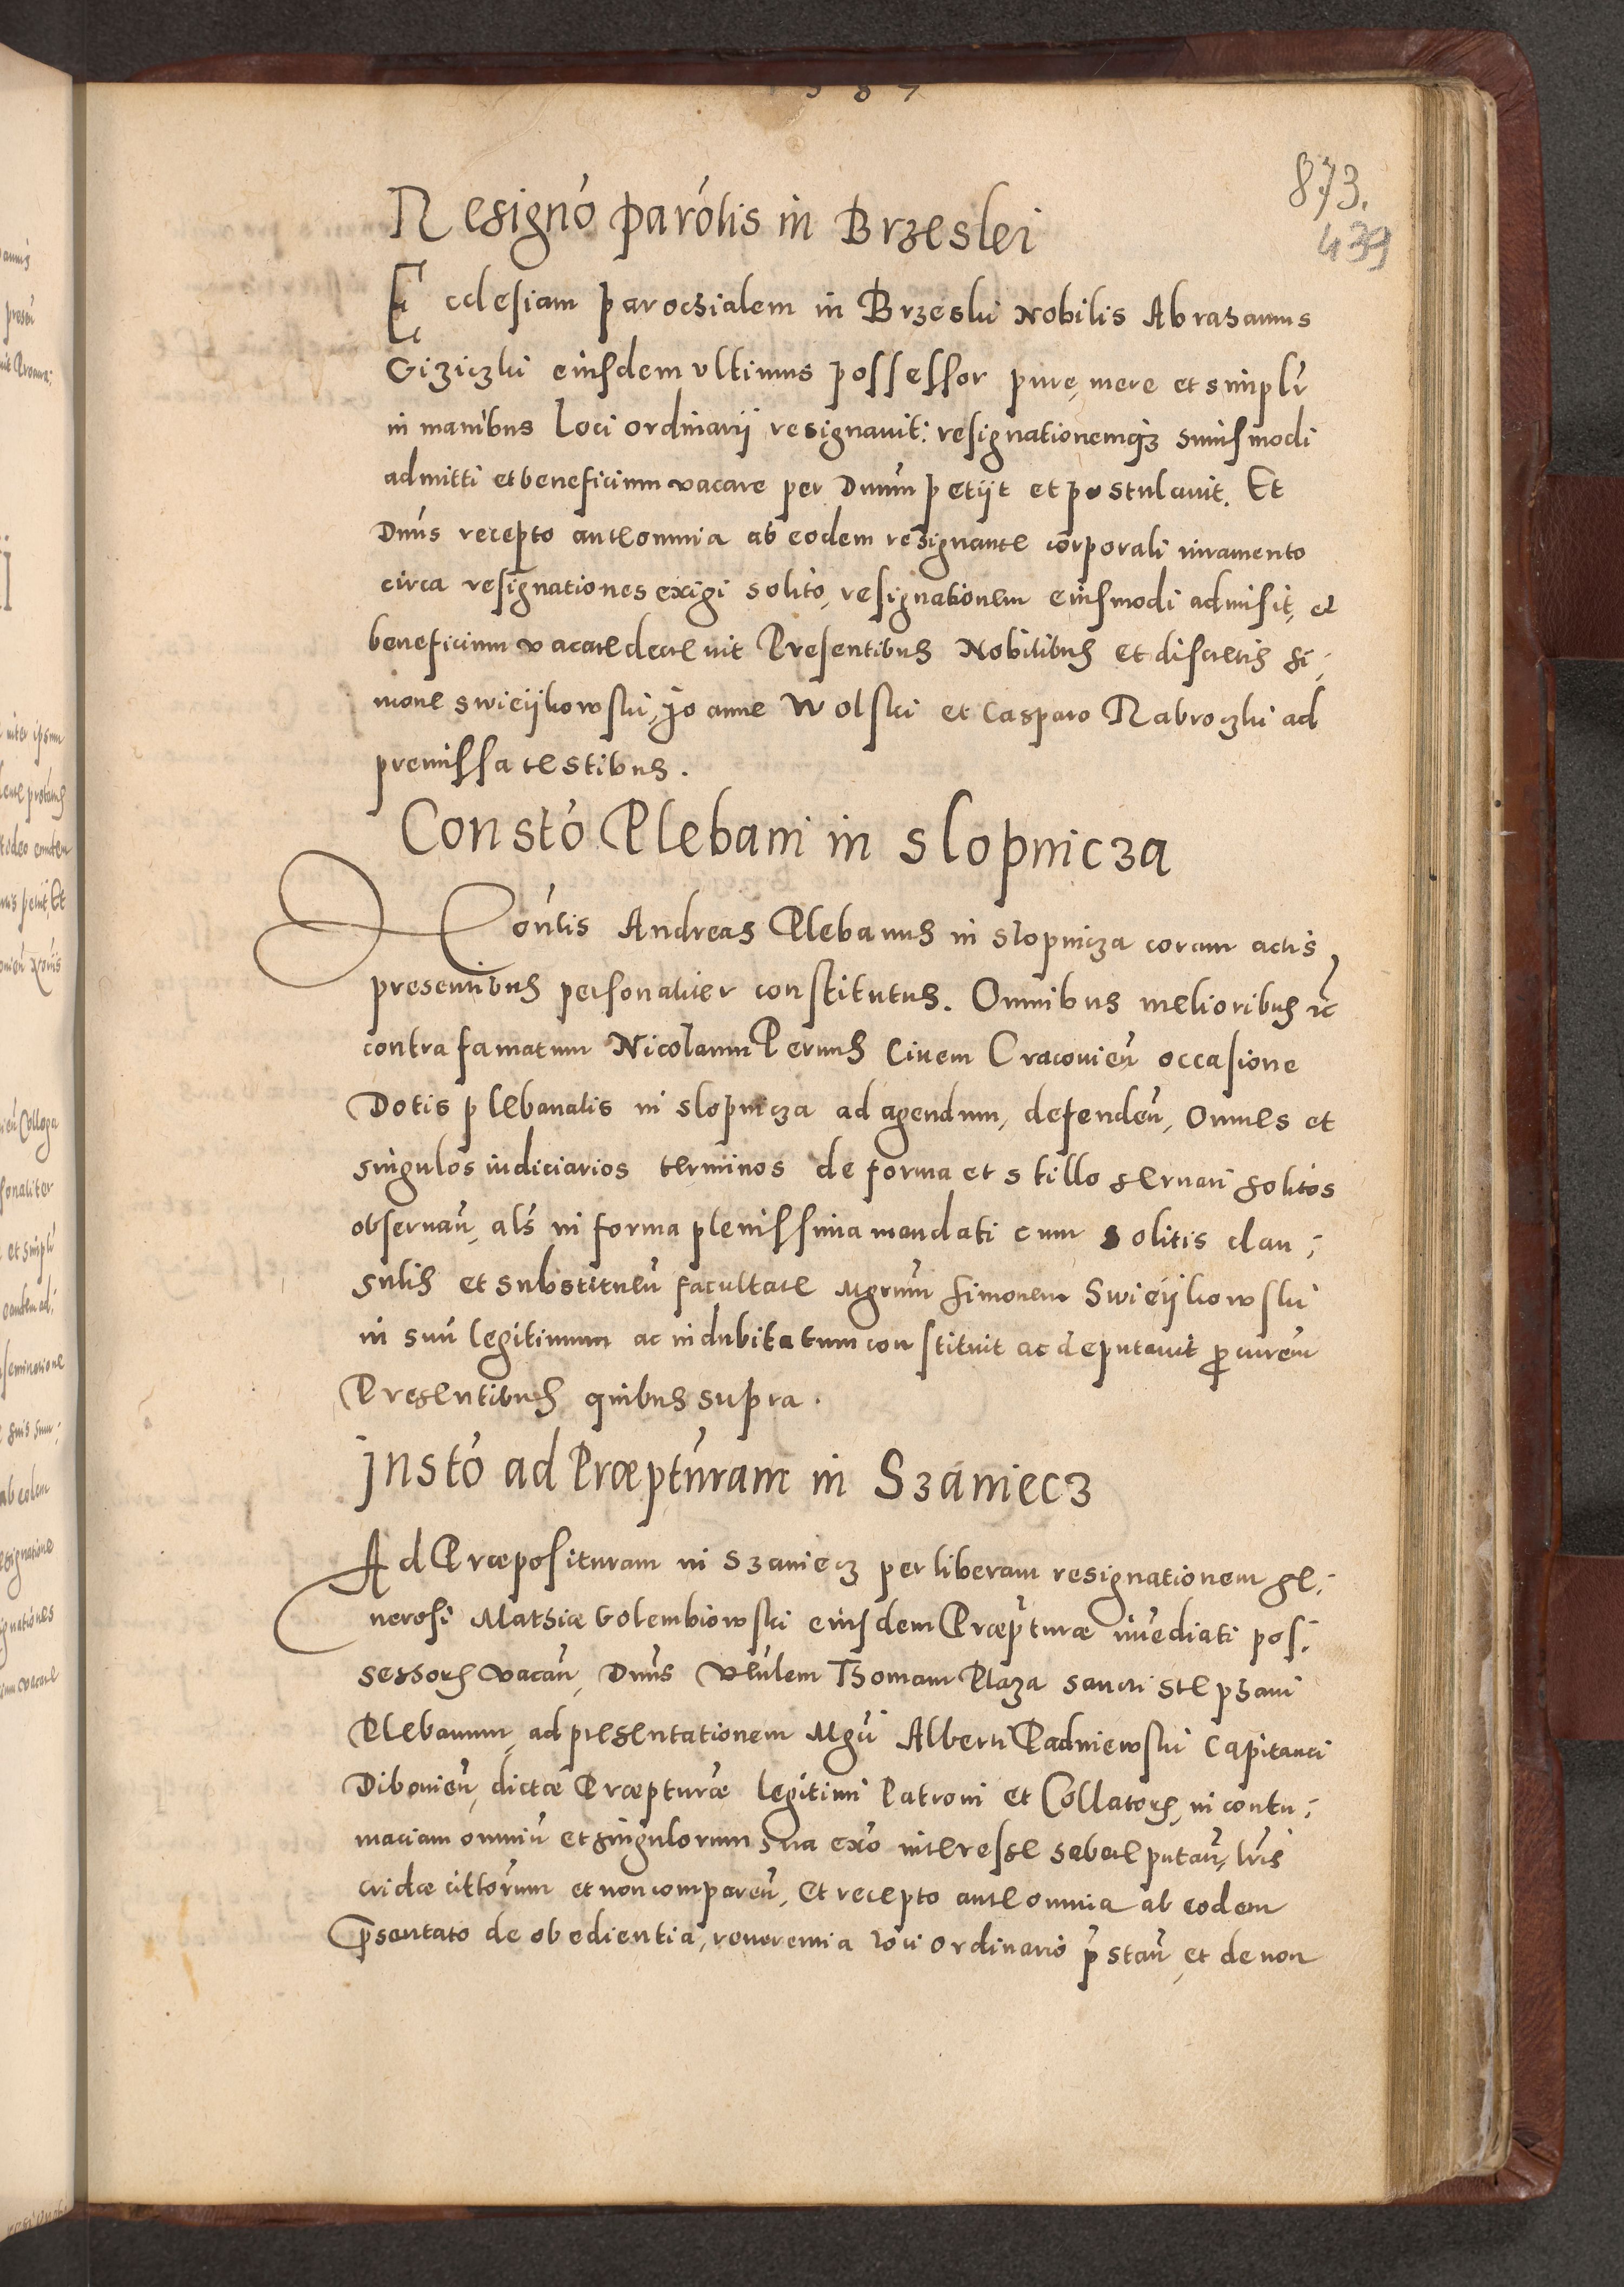 873.
439
Resigno parolis in Brzeskei
Ecclesiam parochialem in Brzesku Nobilis Abrahamus
Giziczki eiusdem ultimus possessor pure, mere et simplr
in manibus loci ordinarij resignauit: resignationemq3 huiusmodi
admitti et beneficium vacare per Dnum petijt et postulauit. Et
Dnus recepto ante omnia ab eodem resignante corporali iuramento
circa resignationes exigi solito, resignationem eiusmodi admisit, et
beneficium vacare decreuit Presentibus Nobilibus et discretis Si,
mone Swieijkowski, Joanne Wolski et Casparo Nabroczki ad
premissa testibus.
Consto Plebani in Slopnicza
Conlis Andreas Plebanus in Slopnicza coram actis
presentibus personaliter constitutus. Omnibus melioribus etc
contra famatum Nicolaum Perus Ciuem Cracouien occasione
Dotis plebanalis in Slopnicza ad agendum, defenden, Omnes et
singulos iudiciarios terminos de forma et stillo seruari solitos
obseruan, als in forma plenissima mandati cum solitis clau,
sulis et substituen facultate Mgrum Simonem Swieijkowski
in suu legitimum ac indubitatum constituit ac deputauit procurem
Presentibus quibus supra.
Insto ad Præpturam in Szaniecz
Ad Præposituram in Szaniecz per liberam resignationem ge,
nerosi Mathiæ Golembiowski eiusdem Præpturæ immediati pos,
sessoris vacan, Dnus Venlem Thomam Plaza Sancti Stephani
Plebanum, ad presentationem Mgci Alberti Padniewski Capitanei
Dibouien, dictæ Præpturæ legitimi Patroni et Collatoris, in contu,
maciam omniu et singulorum sua exo interesse habere putan, lris
cridæ cittorum et non comparen, Et recepto ante omnia ab eodem
Psentato de obedientia, reuerentia loci ordinario pstan, et de non